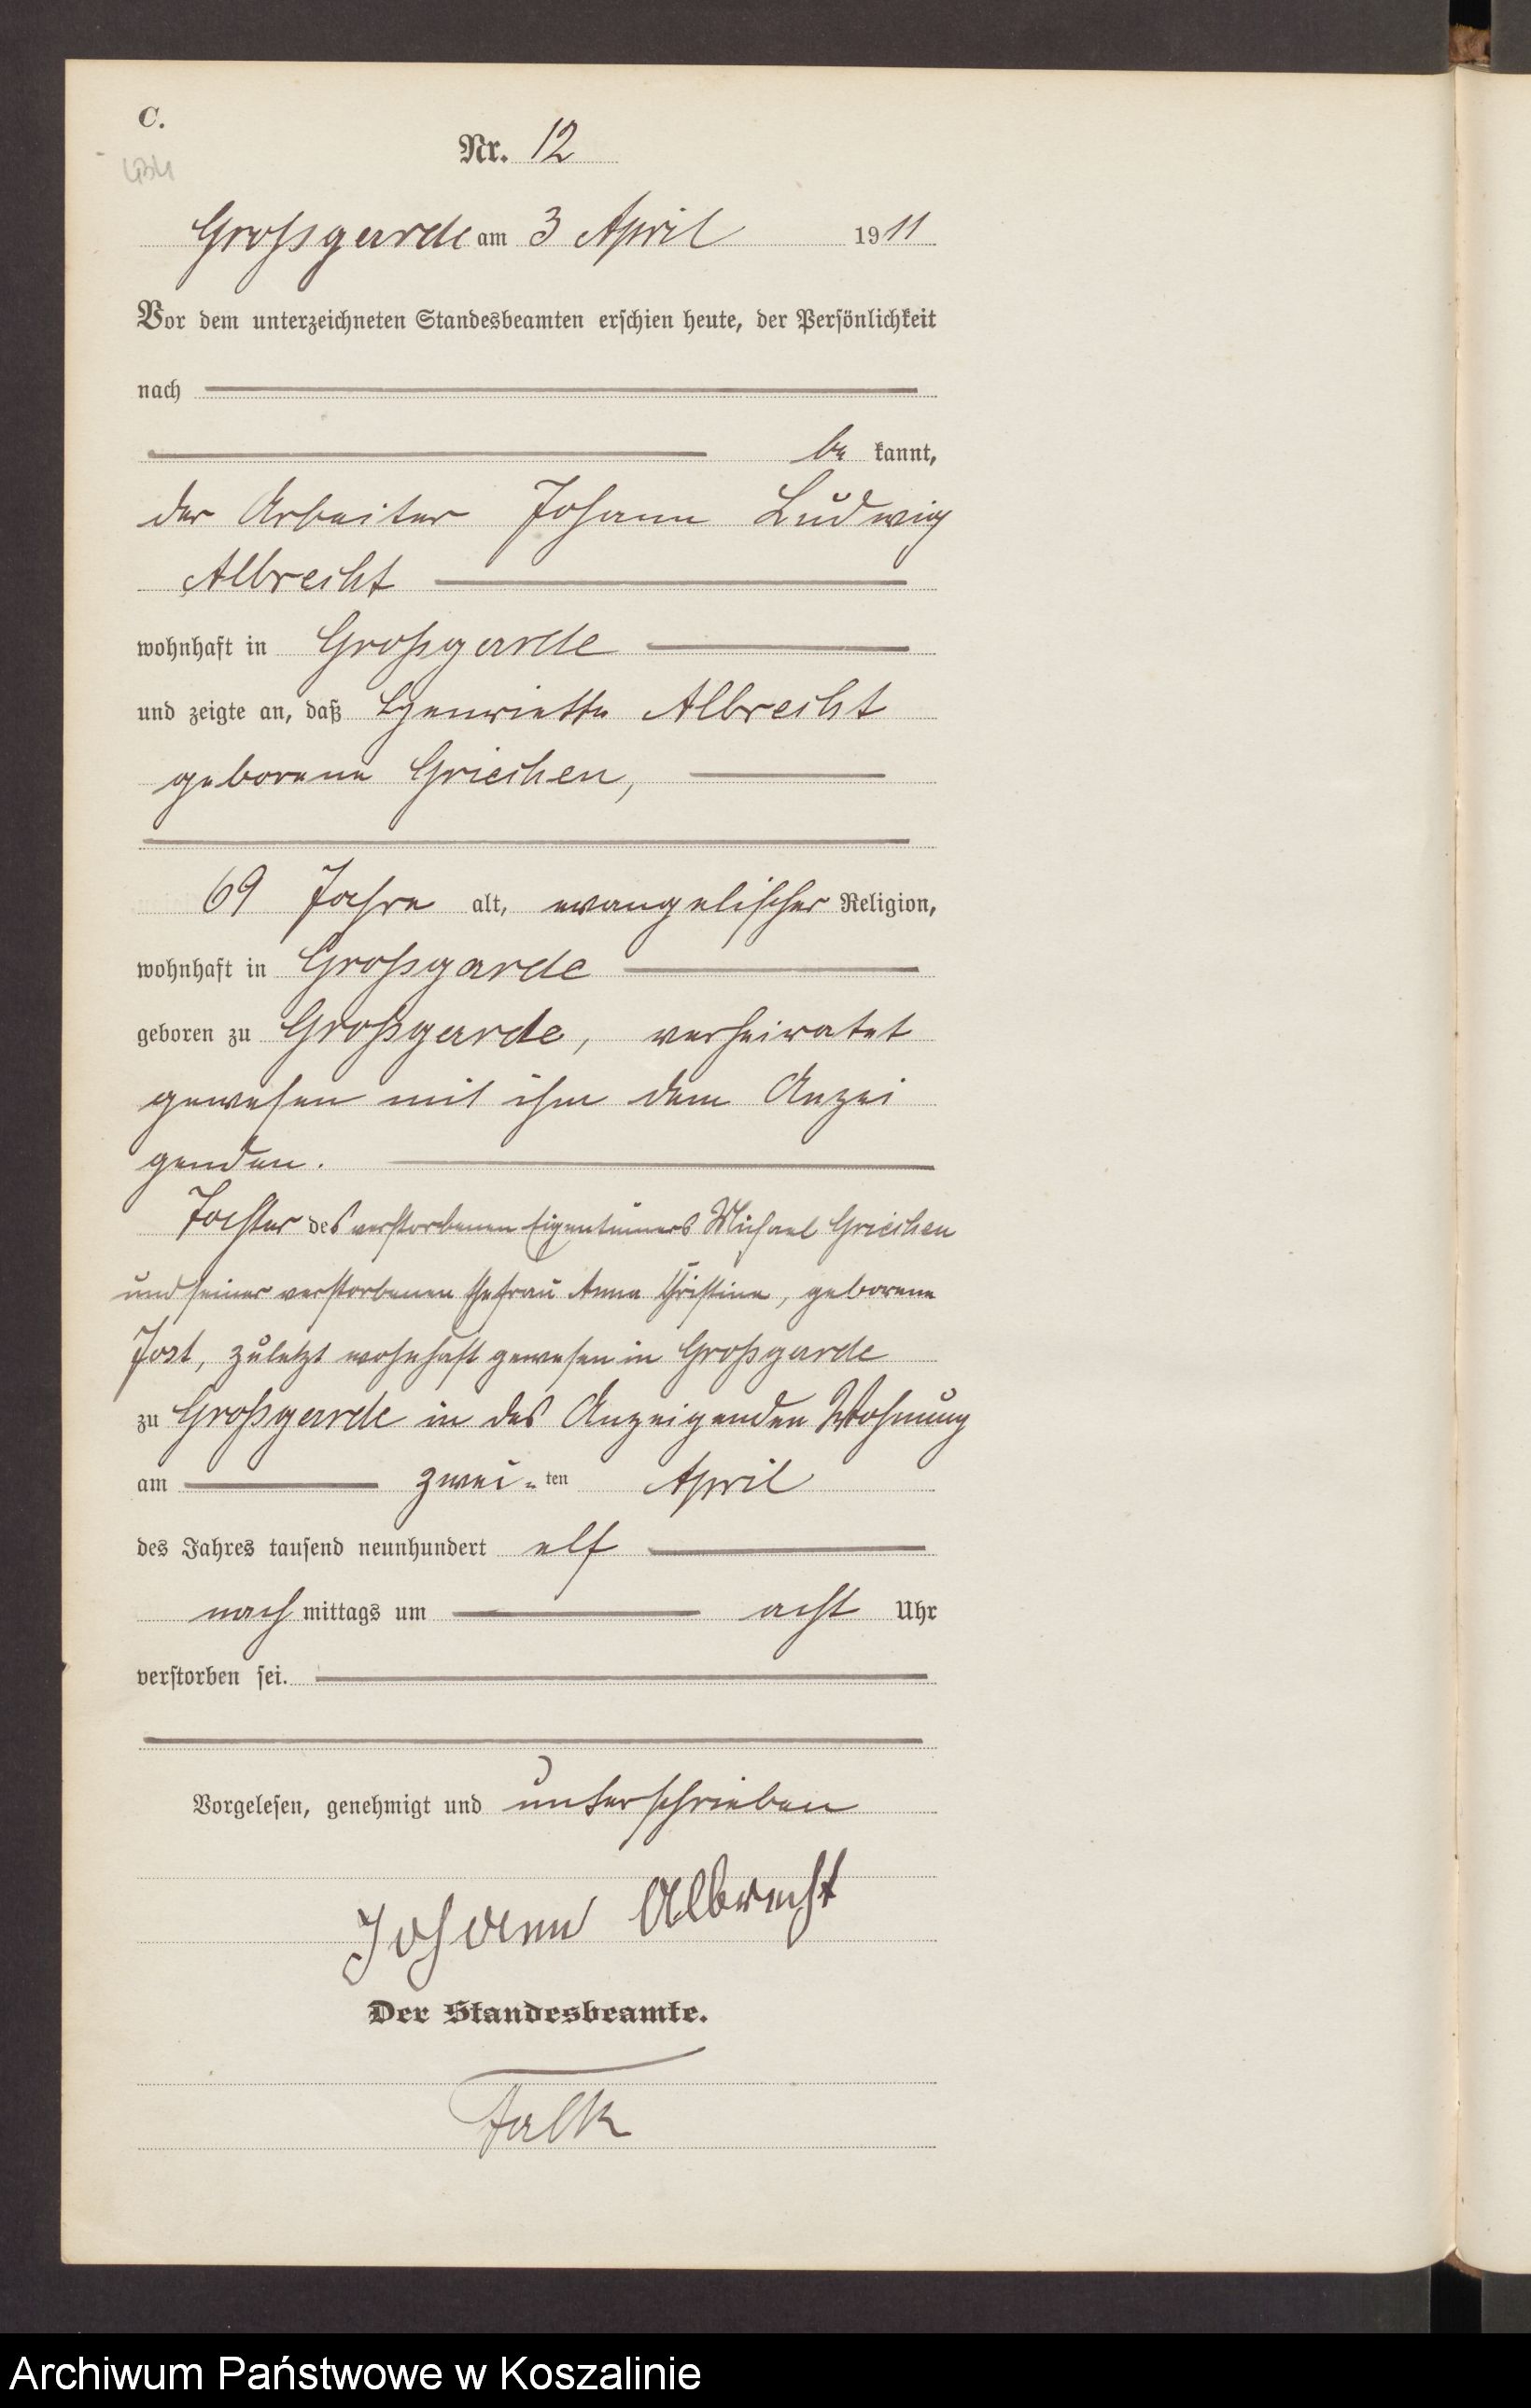 C.
Nr. 12
Großgarde am 3 April 1911
Vor dem unterzeichneten Standesbeamten erschien heute, der Persönlichkeit
nach
be kannt,
der Arbeiter Johann Ludwig
Albrecht
wohnhaft in Großgarde
und zeigte an, daß Henriette Albrecht
geborene Griechen,
69 Jahre alt, evangelischer Religion,
wohnhaft in Großgarde
geboren zu Großgarde, verheiratet
gewesen mit ihm dem Anzei
genden.
Tochter des verstorbenen Eigentümers Michael Griechen
und seiner verstorbenen Ehefrau Anna Christine, geborene
Jost, zuletzt wohnhaft gewesen in Großgarde
zu Großgarde in des Anzeigenden Wohnung
am zwei-ten April
des Jahres tausend neunhundert elf
nach mittags um acht Uhr
verstorben sei.
Vorgelesen, genehmigt und unterschrieben
Johann Albrecht
Der Standesbeamte.
Falk
Archiwum Państwowe w Koszalinie